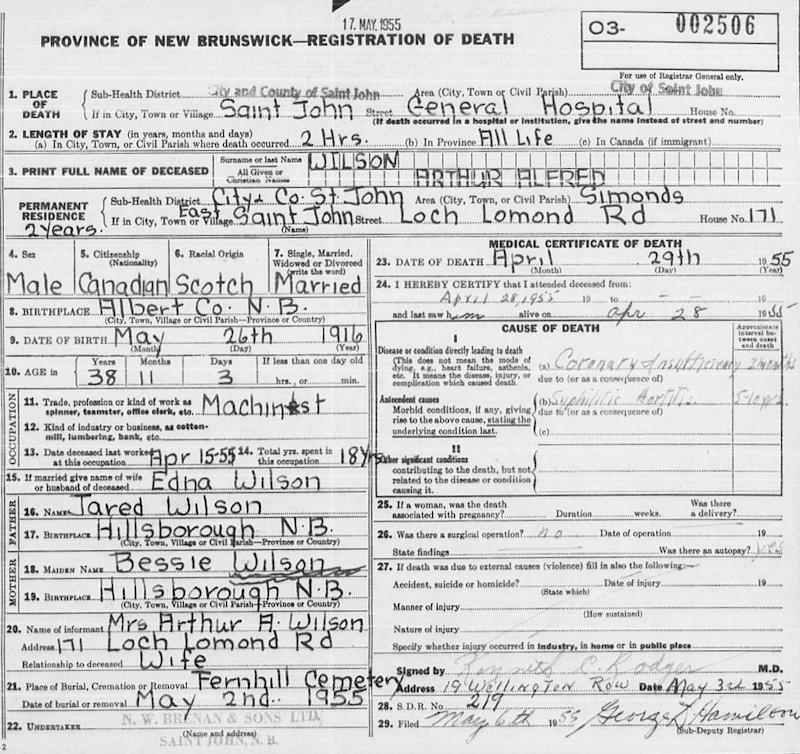 17. MAY. 1955
PROVINCE OF NEW BRUNSWICK—REGISTRATION OF DEATH
03- 002506
For use of Registrar General only.
1. PLACE OF DEATH
Sub-Health District City and County of Saint John Area (City, Town or Civil Parish) City of Saint John
If in City, Town or Village Saint John Street General Hospital House No.
(If death occurred in a hospital or institution, give the name instead of street and number)
2. LENGTH OF STAY (in years, months and days)
(a) In City, Town, or Civil Parish where death occurred 2 Hrs. (b) In Province All Life (c) In Canada (if immigrant)
3. PRINT FULL NAME OF DECEASED
Surname or last Name WILSON
All Given or Christian Names ARTHUR ALFRED
PERMANENT RESIDENCE 2 years.
Sub-Health District City & Co. St. John Area (City, Town or Civil Parish) Simonds
If in City, Town or Village East Saint John Street Loch Lomond Rd House No. 171
(Name)
4. Sex Male
5. Citizenship (Nationality) Canadian
6. Racial Origin Scotch
7. Single, Married, Widowed or Divorced (write the word) Married
8. BIRTHPLACE Albert Co. N.B.
(City, Town, Village or Civil Parish—Province or Country)
9. DATE OF BIRTH May 26th 1916
(Month) (Day) (Year)
10. AGE in Years 38 Months 11 Days 3 If less than one day old hrs., or min.
OCCUPATION
11. Trade, profession or kind of work as spinner, teamster, office clerk, etc. Machinist
12. Kind of industry or business, as cotton-mill, lumbering, bank, etc.
13. Date deceased last worked at this occupation Apr 15-55 14. Total yrs. spent in this occupation 18 Yrs.
15. If married give name of wife or husband of deceased Edna Wilson
FATHER
16. NAME Jared Wilson
17. BIRTHPLACE Hillsborough N.B.
(City, Town, Village or Civil Parish—Province or Country)
MOTHER
18. MAIDEN NAME Bessie Wilson
19. BIRTHPLACE Hillsborough N.B.
(City, Town, Village or Civil Parish—Province or Country)
20. Name of informant Mrs Arthur A. Wilson
Address 171 Loch Lomond Rd
Relationship to deceased Wife
21. Place of Burial, Cremation or Removal Fernhill Cemetery
Date of burial or removal May 2nd 1955
22. UNDERTAKER N. W. BRENAN & SONS LTD.
(Name and address)
SAINT JOHN, N. B.
2
MEDICAL CERTIFICATE OF DEATH
23. DATE OF DEATH April 29th 1955
(Month) (Day) (Year)
24. I HEREBY CERTIFY that I attended deceased from:
April 28, 1955 19 to – – 19
and last saw him alive on Apr 28 1955
CAUSE OF DEATH
Approximate interval between onset and death
I
Disease or condition directly leading to death
(This does not mean the mode of dying, e.g., heart failure, asthenia, etc. It means the disease, injury, or complication which caused death.
(a) Coronary Insufficiency 2 months
due to (or as a consequence of)
Antecedent causes
Morbid conditions, if any, giving rise to the above cause, stating the underlying condition last.
(b) Syphilitic Aortitis 5-10 yrs.
due to (or as a consequence of)
(c)
II
Other significant conditions
contributing to the death, but not related to the disease or condition causing it.
25. If a woman, was the death associated with pregnancy? Duration weeks. Was there a delivery?
26. Was there a surgical operation? no Date of operation 19
State findings Was there an autopsy? yes
27. If death was due to external causes (violence) fill in also the following:—
Accident, suicide or homicide? Date of injury 19
(State which)
Manner of injury
(How sustained)
Nature of injury
Specify whether injury occurred in industry, in home or in public place
Signed by Kenneth C. Rodger M.D.
Address 19 Wellington Row Date May 3rd 1955
28. S.D.R. No. 219
29. Filed May 6th 1955 George L Hamilton
(Sub-Deputy Registrar)